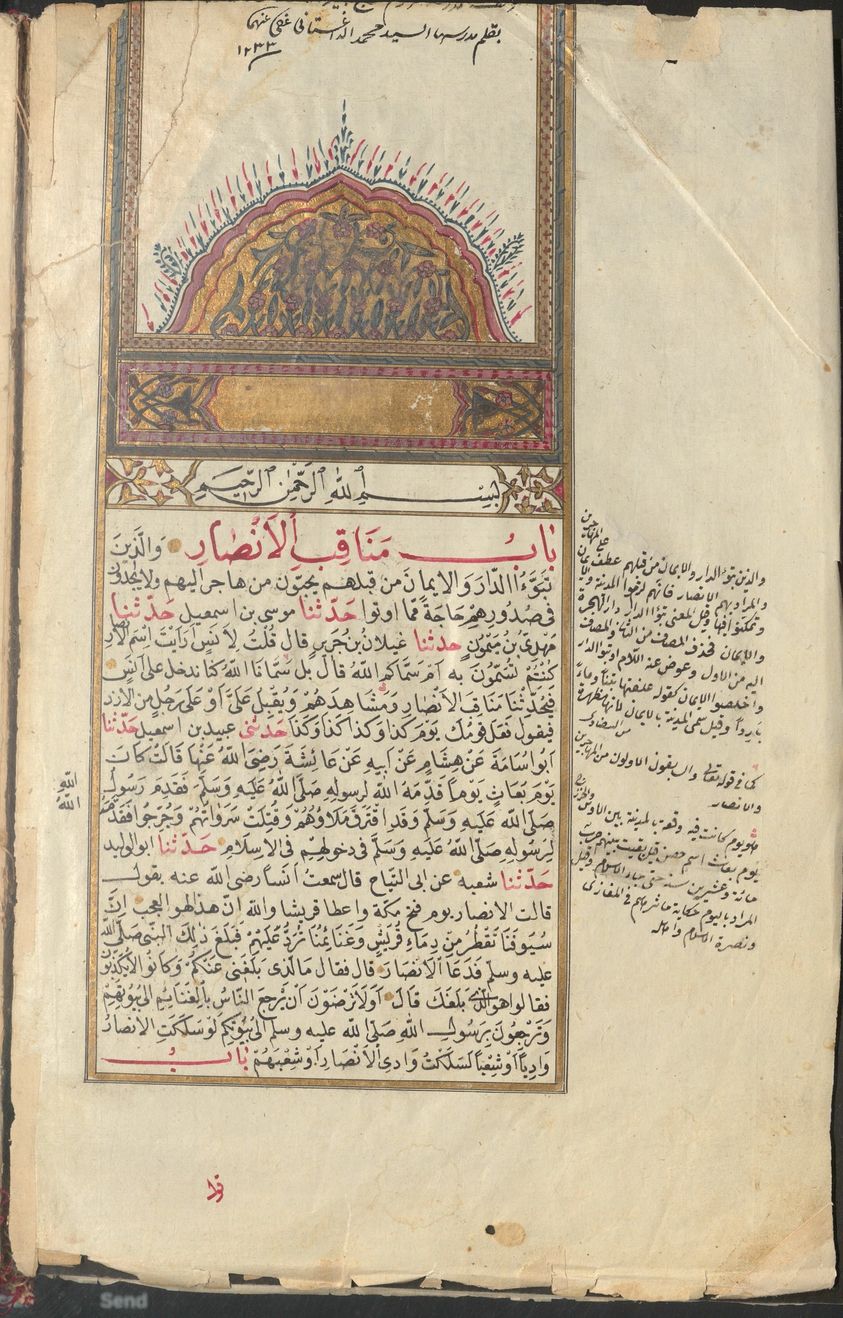 بقلم مدرسها السيد محمد الداغستانى عفى عنهما
١٢٣٣
بسم الله الرحمن الرحيم
باب مناقب الانصار والذين
تبوءا الدار والايمان من قبلهم يحبون من هاجر اليهم ولا يجدون
فى صدورهم حاجة مما اوتوا حدثنا موسى بن اسمعيل حدثنا
مهدى بن ميمون حدثنا غيلان بن جرير قال قلت لانس ارايت اسم الانصار
كنتم تسمون به ام سماكم الله قال بل سمانا الله كنا ندخل على انس
فيحدثنا مناقب الانصار ومشاهدهم ويقبل على او على رجل من الازد
فيقول فعل قومك يوم كذا وكذا كذا وكذا حدثنى عبيد بن اسمعيل حدثنا
ابو اسامة عن هشام عن ابيه عن عائشة رضى الله عنها قالت كان
يوم بعاث يوما قدمه الله لرسوله صلى الله عليه وسلم فقدم رسول
الله
الله
صلى الله عليه وسلم وقد افترق ملاؤهم وقتلت سرواتهم وجرحوا فقدمه
لرسوله صلى الله عليه وسلم فى دخولهم فى الاسلام حدثنا ابو الوليد
حدثنا شعبه عن ابى التياح قال سمعت انسا رضى الله عنه يقول
قالت الانصار يوم فتح مكة واعطا قريشا والله ان هذا لهو العجب ان
سيوفنا تقطر من دماء قريش وغنايمنا ترد عليهم فبلغ ذلك النبى صلى الله
عليه وسلم فدعا الانصار قال فقال ما الذى بلغنى عنكم وكانوا لا يكذبون
فقالوا هو الذى بلغك قال اولا ترضون ان يرجع الناس بالغنايم الى بيوتهم
وترجعون برسول الله صلى الله عليه وسلم الى بيوتكم لو سلكت الانصار
واديا او شعبا لسلكت وادى الانصار او شعبهم باب
والذين تبوؤ الدار والايمان من قبلهم عطف على المهاجرين
والمراد بهم الانصار فانهم لزموا المدينة والايمان
وتمكنوا فيها وقيل المعنى تبوؤا الدار دار الهجرة
والايمان فحذف المضاف من الثانى والمضاف
اليه من الاول وعوض عنه اللام او تبوؤا الدار
واخلصوا الايمان كقوله علفتها تبنا وماء
باردا وقيل سمى المدينة بالايمان لانها مظهره
كما فى قوله تعالى والسابقون الاولون من المهاجرين
والانصار
هو يوم كانت فيه وقعة بالمدينة بين الاوس والخزرج
يوم بعاث اسم حصن بقيت بينهم حرب
مائة وعشرين سنة حتى جاء الاسلام وقيل
المراد باليوم